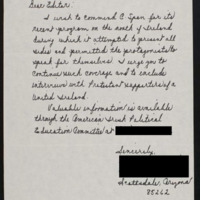 Dear Editor:
I wish to commend C Span for its
recent program on the north of Ireland
during which it attempted to present all
sides and permitted the protagonists to
speak for themselves. I urge you to
continue such coverage and to include
interviews with Protestant supporters of a
United Ireland.
Valuable information is available
through the American Irish Political
Education Committee at
Sincerely,
Scottsdale, Arizona
85262